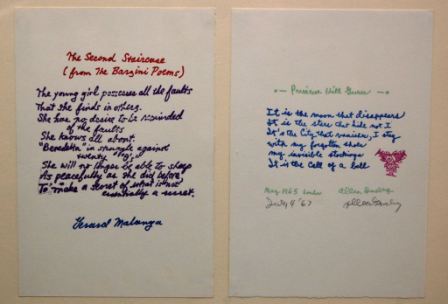 The Second Staircase
(from The Barzini Poems)
The young girl possesses all the faults
That she finds in others.
She has no desire to be reminded
of the faults
She knows all about.
"Benedetta" in struggle against
twenty
She will no longer be able to sleep
As peacefully as she did before,
To make a secret of what is not
essentially a secret.
Gerard Malanga
Primrose Hill Guru
It is the moon that disappears
It is the stars that hide not I
It's the City that vanishes, I stay
with my forgotten shoes
my invisible stocking
It is the Call of a bell
May 1965
Allen Ginsberg
July 4 '67
Allen Ginsberg